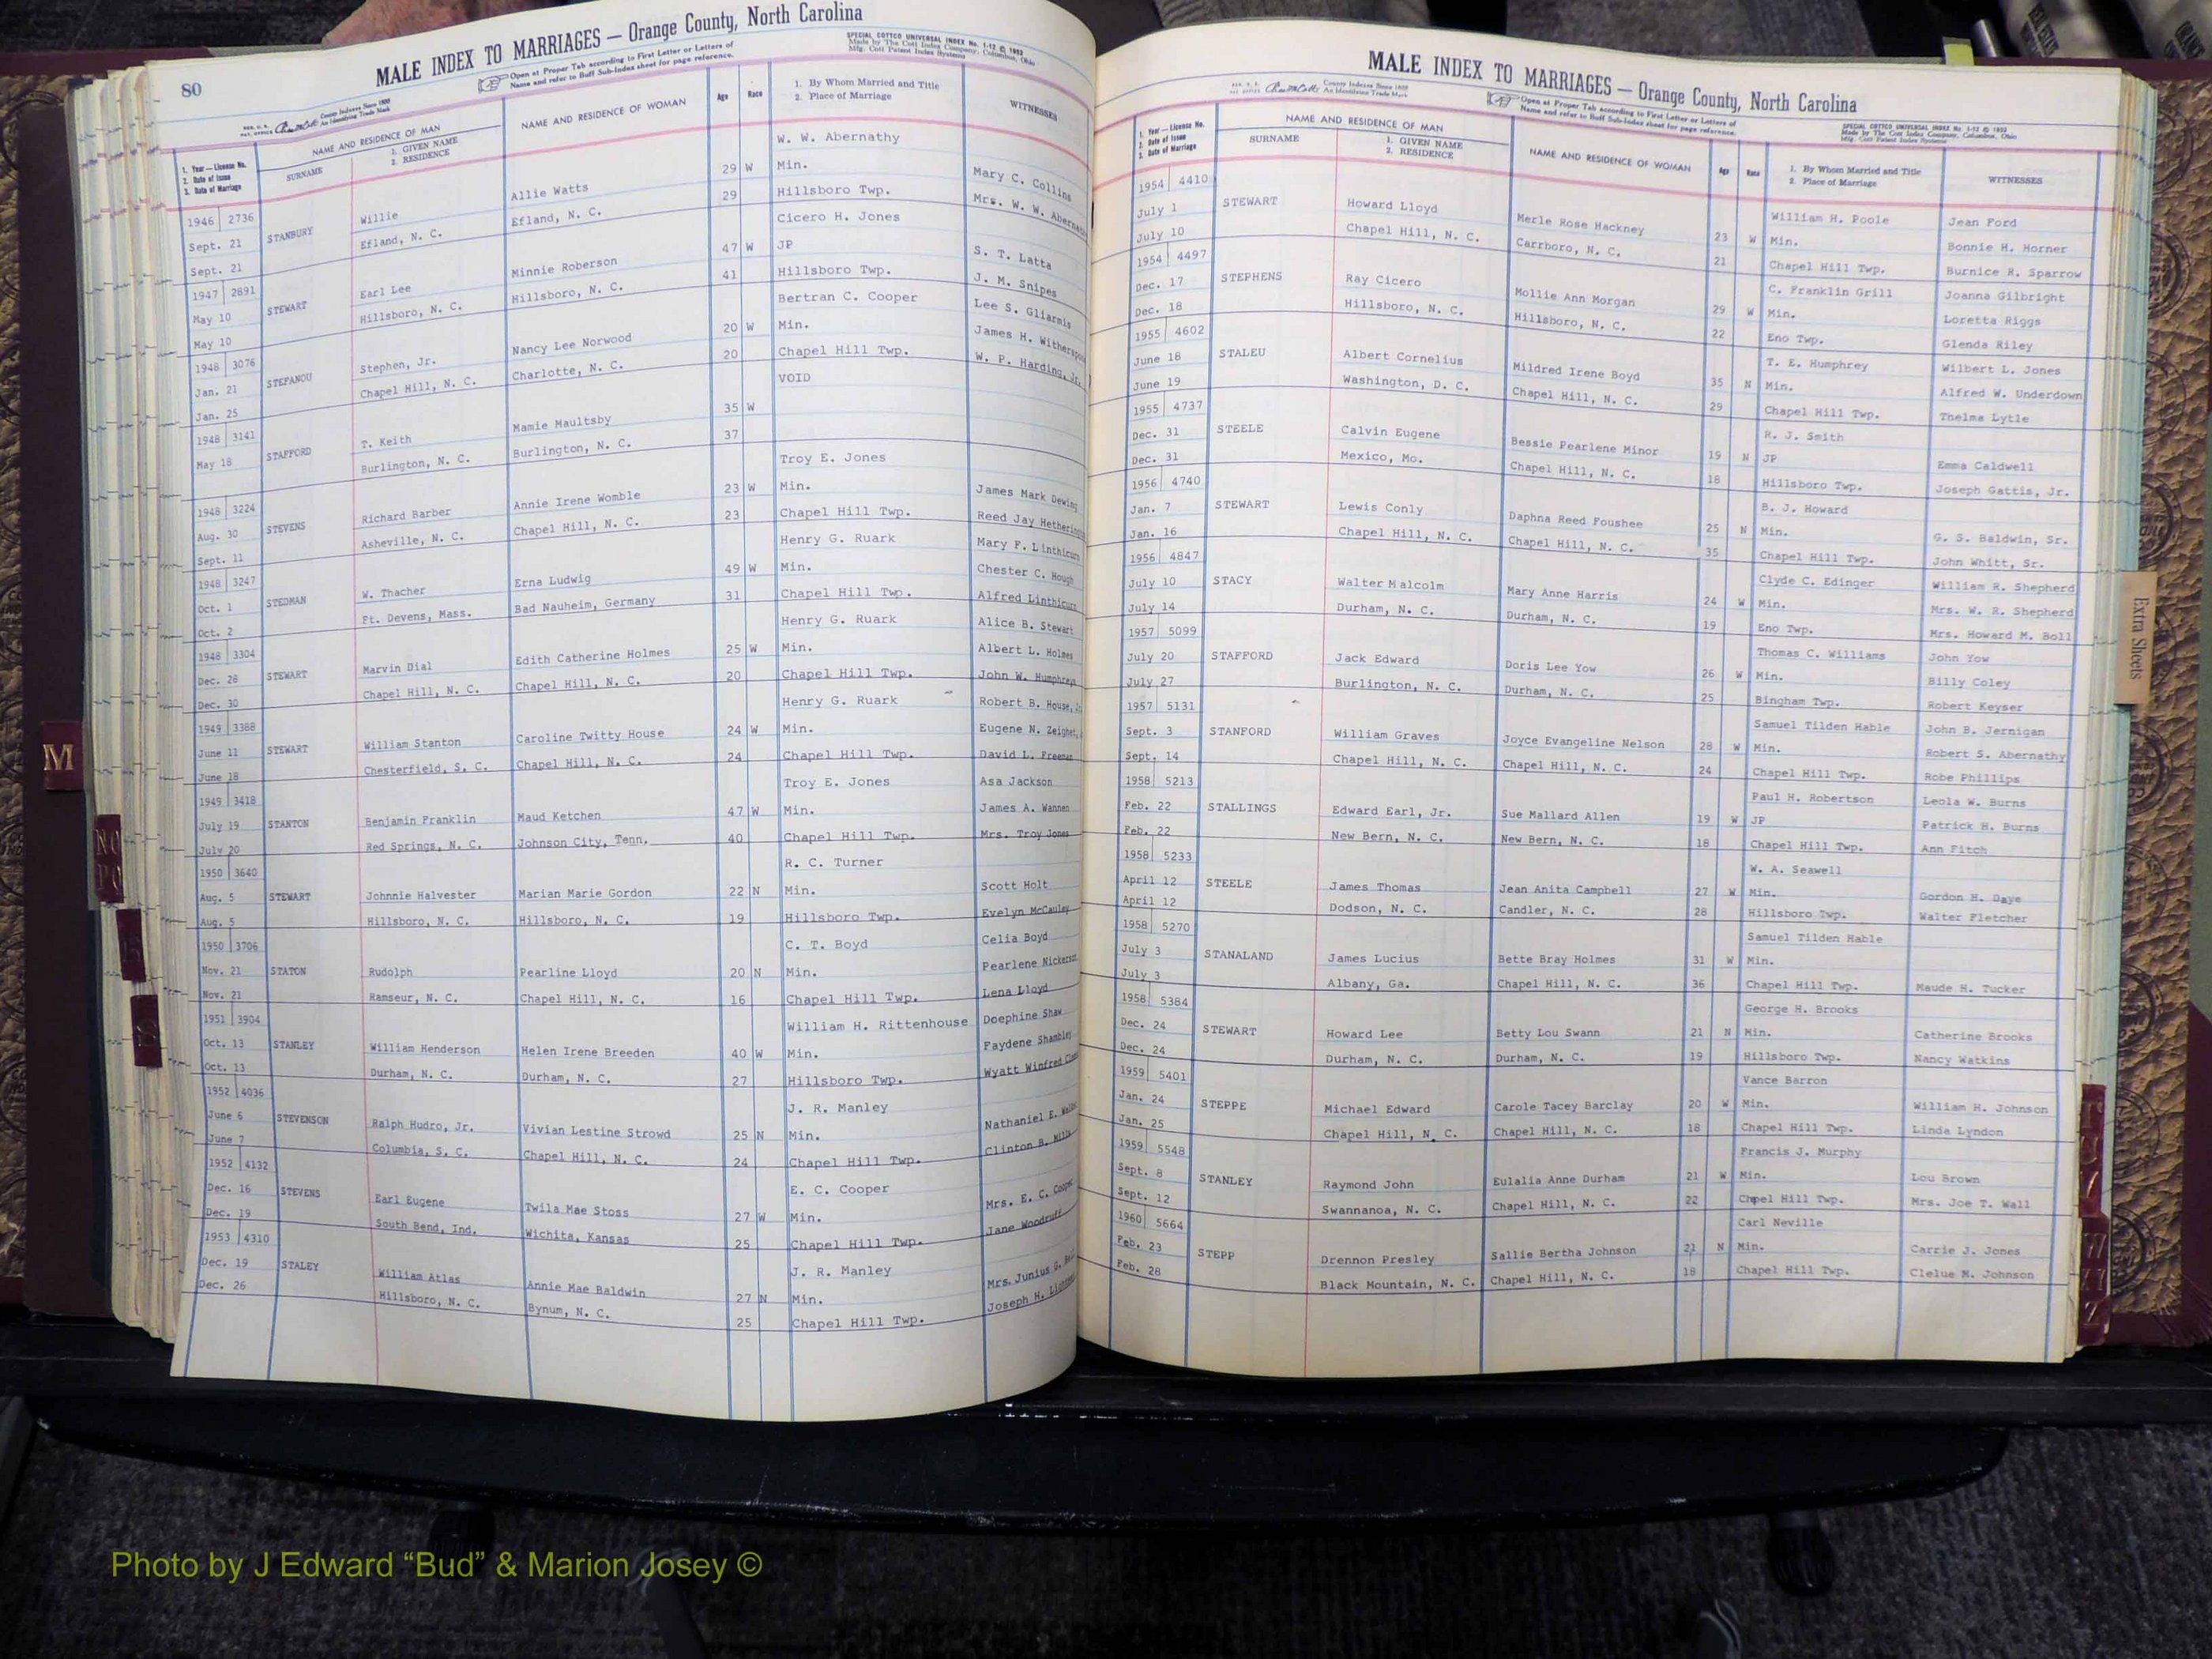 80
MALE INDEX TO MARRIAGES — Orange County, North Carolina
Open at Proper Tab according to First Letter or Letters of
Name and refer to Buff Sub-Index sheet for page reference.
SPECIAL COTTCO UNIVERSAL INDEX No. 1-12 © 1952
Made by The Cott Index Company, Columbus, Ohio
Mfg. Cott Patent Index Systems
County Indexes Since 1888
An Identifying Trade Mark
1. Year — License No.
2. Date of Issue
3. Date of Marriage
NAME AND RESIDENCE OF MAN
SURNAME
1. GIVEN NAME
2. RESIDENCE
NAME AND RESIDENCE OF WOMAN
Age
Race
1. By Whom Married and Title
2. Place of Marriage
WITNESSES
W. W. Abernathy
1946 2736 Willie Allie Watts 29 W Min. Mary C. Collins
Sept. 21 STANBURY Efland, N. C. Efland, N. C. 29 Hillsboro Twp. Mrs. W. W.
Sept. 21 Cicero H. Jones
1947 2891 Earl Lee Minnie Roberson 47 W JP S. T. Latta
May 10 STEWART Hillsboro, N. C. Hillsboro, N. C. 41 Hillsboro Twp. J. M. Snipes
May 10 Bertran C. Cooper Lee S. Gliarmis
1948 3076 Stephen, Jr. Nancy Lee Norwood 20 W Min. James H.
Jan. 21 STEFANOU Chapel Hill, N. C. Charlotte, N. C. 20 Chapel Hill Twp. W. P. Harding, Jr.
Jan. 25 VOID
1948 3141 T. Keith Mamie Maultsby 35 W
May 18 STAFFORD Burlington, N. C. Burlington, N. C. 37
Troy E. Jones
1948 3224 Richard Barber Annie Irene Womble 23 W Min. James Mark Dewing
Aug. 30 STEVENS Asheville, N. C. Chapel Hill, N. C. 23 Chapel Hill Twp. Reed Jay
Sept. 11 Henry G. Ruark Mary F. Linthicum
1948 3247 W. Thacher Erna Ludwig 49 W Min. Chester C. Hough
Oct. 1 STEDMAN Ft. Devens, Mass. Bad Nauheim, Germany 31 Chapel Hill Twp. Alfred Linthicum
Oct. 2 Henry G. Ruark Alice B. Stewart
1948 3304 Marvin Dial Edith Catherine Holmes 25 W Min. Albert L. Holmes
Dec. 28 STEWART Chapel Hill, N. C. Chapel Hill, N. C. 20 Chapel Hill Twp. John W. Humphreys
Dec. 30 Henry G. Ruark Robert B. House,
1949 3388 William Stanton Caroline Twitty House 24 W Min. Eugene N.
June 11 STEWART Chesterfield, S. C. Chapel Hill, N. C. 24 Chapel Hill Twp. David L. Freeman
June 18 Troy E. Jones Asa Jackson
1949 3418 Benjamin Franklin Maud Ketchen 47 W Min. James A. Wannen
July 19 STANTON Red Springs, N. C. Johnson City, Tenn. 40 Chapel Hill Twp. Mrs. Troy Jones
July 20 R. C. Turner
1950 3640 Johnnie Halvester Marian Marie Gordon 22 N Min. Scott Holt
Aug. 5 STEWART Hillsboro, N. C. Hillsboro, N. C. 19 Hillsboro Twp. Evelyn McCauley
Aug. 5 C. T. Boyd Celia Boyd
1950 3706 Rudolph Pearline Lloyd 20 N Min. Pearlene
Nov. 21 STATON Ramseur, N. C. Chapel Hill, N. C. 16 Chapel Hill Twp. Lena Lloyd
Nov. 21 William H. Rittenhouse Doephine Shaw
1951 3904 William Henderson Helen Irene Breeden 40 W Min. Faydene Shambley
Oct. 13 STANLEY Durham, N. C. Durham, N. C. 27 Hillsboro Twp. Wyatt Winfred
Oct. 13 J. R. Manley
1952 4036 Ralph Hudro, Jr. Vivian Lestine Strowd 25 N Min. Nathaniel E.
June 6 STEVENSON Columbia, S. C. Chapel Hill, N. C. 24 Chapel Hill Twp. Clinton B. Mills
June 7 E. C. Cooper
1952 4132 Earl Eugene Twila Mae Stoss 27 W Min. Mrs. E. C. Cooper
Dec. 16 STEVENS South Bend, Ind. Wichita, Kansas 25 Chapel Hill Twp. Jane Woodruff
Dec. 19 J. R. Manley
1953 4310 William Atlas Annie Mae Baldwin 27 N Min. Mrs. Junius G.
Dec. 19 STALEY Hillsboro, N. C. Bynum, N. C. 25 Chapel Hill Twp. Joseph H.
Dec. 26
MALE INDEX TO MARRIAGES — Orange County, North Carolina
Open at Proper Tab according to First Letter or Letters of
Name and refer to Buff Sub-Index sheet for page reference.
SPECIAL COTTCO UNIVERSAL INDEX No. 1-12 © 1952
Made by The Cott Index Company, Columbus, Ohio
Mfg. Cott Patent Index Systems
County Indexes Since 1888
An Identifying Trade Mark
1. Year — License No.
2. Date of Issue
3. Date of Marriage
NAME AND RESIDENCE OF MAN
SURNAME
1. GIVEN NAME
2. RESIDENCE
NAME AND RESIDENCE OF WOMAN
Age
Race
1. By Whom Married and Title
2. Place of Marriage
WITNESSES
1954 4410 William H. Poole Jean Ford
July 1 STEWART Howard Lloyd Merle Rose Hackney 23 W Min. Bonnie H. Horner
July 10 Chapel Hill, N. C. Carrboro, N. C. 21 Chapel Hill Twp. Burnice R. Sparrow
1954 4497 C. Franklin Grill Joanna Gilbright
Dec. 17 STEPHENS Ray Cicero Mollie Ann Morgan 29 W Min. Loretta Riggs
Dec. 18 Hillsboro, N. C. Hillsboro, N. C. 22 Eno Twp. Glenda Riley
1955 4602 T. E. Humphrey Wilbert L. Jones
June 18 STALEU Albert Cornelius Mildred Irene Boyd 35 N Min. Alfred W. Underdown
June 19 Washington, D. C. Chapel Hill, N. C. 29 Chapel Hill Twp. Thelma Lytle
1955 4737 R. J. Smith
Dec. 31 STEELE Calvin Eugene Bessie Pearlene Minor 19 N JP Emma Caldwell
Dec. 31 Mexico, Mo. Chapel Hill, N. C. 18 Hillsboro Twp. Joseph Gattis, Jr.
1956 4740 B. J. Howard
Jan. 7 STEWART Lewis Conly Daphna Reed Foushee 25 N Min. G. S. Baldwin, Sr.
Jan. 16 Chapel Hill, N. C. Chapel Hill, N. C. 35 Chapel Hill Twp. John Whitt, Sr.
1956 4847 Clyde C. Edinger William R. Shepherd
July 10 STACY Walter Malcolm Mary Anne Harris 24 W Min. Mrs. W. R. Shepherd
July 14 Durham, N. C. Durham, N. C. 19 Eno Twp. Mrs. Howard M. Boll
1957 5099 Thomas C. Williams John Yow
July 20 STAFFORD Jack Edward Doris Lee Yow 26 W Min. Billy Coley
July 27 Burlington, N. C. Durham, N. C. 25 Bingham Twp. Robert Keyser
1957 5131 Samuel Tilden Hable John B. Jernigan
Sept. 3 STANFORD William Graves Joyce Evangeline Nelson 28 W Min. Robert S. Abernathy
Sept. 14 Chapel Hill, N. C. Chapel Hill, N. C. 24 Chapel Hill Twp. Robe Phillips
1958 5213 Paul H. Robertson Leola W. Burns
Feb. 22 STALLINGS Edward Earl, Jr. Sue Mallard Allen 19 W JP Patrick H. Burns
Feb. 22 New Bern, N. C. New Bern, N. C. 18 Chapel Hill Twp. Ann Fitch
1958 5233 W. A. Seawell
April 12 STEELE James Thomas Jean Anita Campbell 27 W Min. Gordon H. Daye
April 12 Dodson, N. C. Candler, N. C. 28 Hillsboro Twp. Walter Fletcher
1958 5270 Samuel Tilden Hable
July 3 STANALAND James Lucius Bette Bray Holmes 31 W Min.
July 3 Albany, Ga. Chapel Hill, N. C. 36 Chapel Hill Twp. Maude H. Tucker
1958 5384 George H. Brooks
Dec. 24 STEWART Howard Lee Betty Lou Swann 21 N Min. Catherine Brooks
Dec. 24 Durham, N. C. Durham, N. C. 19 Hillsboro Twp. Nancy Watkins
1959 5401 Vance Barron
Jan. 24 STEPPE Michael Edward Carole Tacey Barclay 20 W Min. William H. Johnson
Jan. 25 Chapel Hill, N. C. Chapel Hill, N. C. 18 Chapel Hill Twp. Linda Lyndon
1959 5548 Francis J. Murphy
Sept. 8 STANLEY Raymond John Eulalia Anne Durham 21 W Min. Lou Brown
Sept. 12 Swannanoa, N. C. Chapel Hill, N. C. 22 Chapel Hill Twp. Mrs. Joe T. Wall
1960 5664 Carl Neville
Feb. 23 STEPP Drennon Presley Sallie Bertha Johnson 21 N Min. Carrie J. Jones
Feb. 28 Black Mountain, N. C. Chapel Hill, N. C. 18 Chapel Hill Twp. Clelue M. Johnson
Extra Sheets
M
Photo by J Edward “Bud” & Marion Josey ©